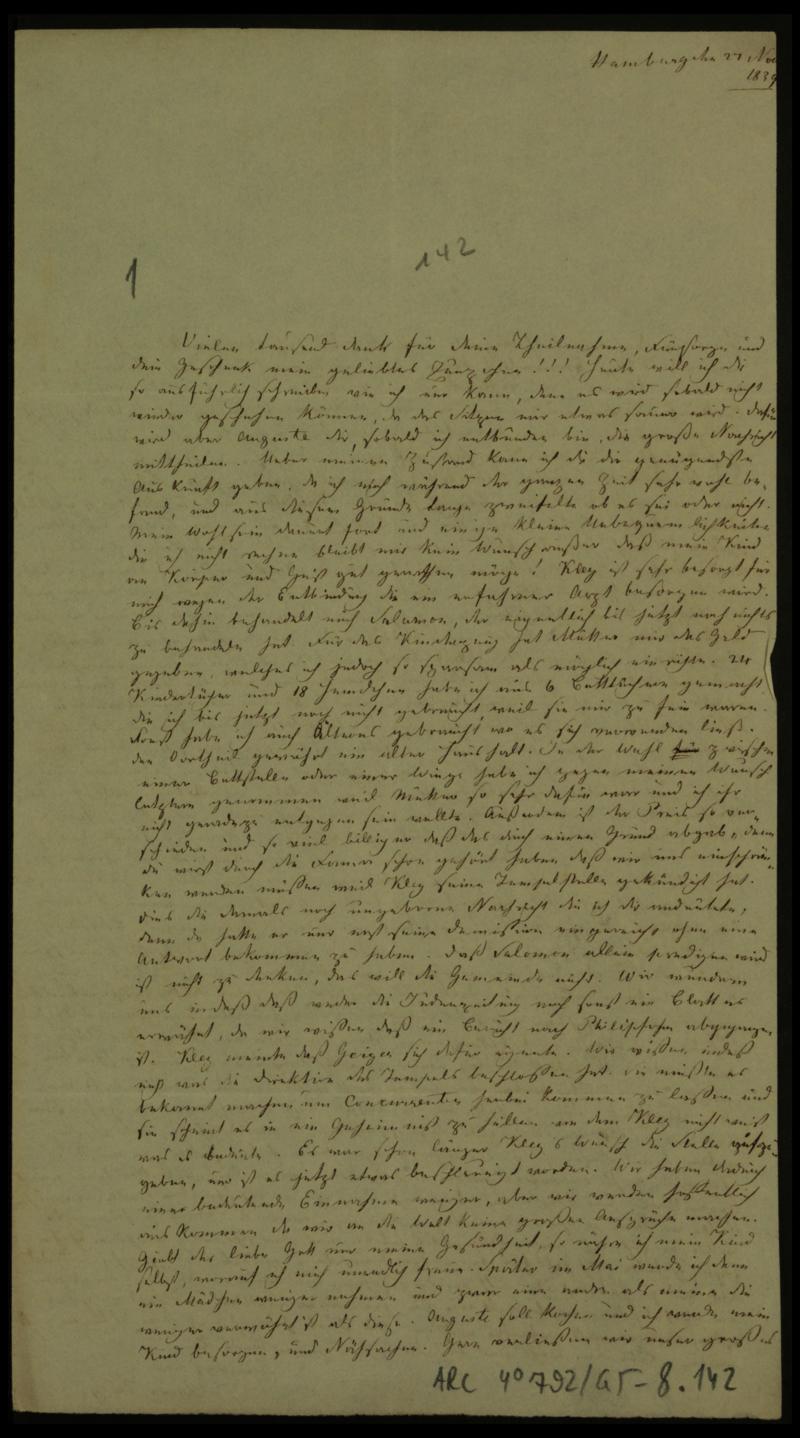 Hamburg den 27 Nov
1839
142
1
Vielen tausend Dank für deine Theilnahme, Fürsorge und
dein Geschenk mein geliebtes !!! Heute will ich dir
so ausführlich schreiben wie ich nur kann, denn es wird sobald nicht
wieder geschehen können, da das Sitzen mir etwas sauer wird. Dafür
wird aber Auguste dir, sobald ich entbunden bin, die große Nachricht
mittheilen. Ueber meinen Zustand kann ich dir die genügendste
Auskunft geben, da ich mich während der ganzen Zeit sehr wohl be-
fand, und aus diesem Grunde lange zweifelte ob es sei oder nicht.
Mein Wohlsein dauert fort und einige kleine Unbequemlichkeiten
die ich nicht rechne bleibt mir kein Wunsch außer daß mein Kind
an Körper und Geist gut gerathen möge! Kley ist sehr besorgt für
mich wegen der Entbindung die ein erfahrner Arzt besorgen wird.
Bis dahin behandelt mich Salomon, der eigentlich bis jetzt noch nichts
zu behandeln hat. Für das Kinderzeug hat Mutter mir das Geld
gegeben, welches ich jedoch so sparsam als möglich einrichte. 24
Kindertücher und 18 Hemdchen habe ich aus 6 Betttüchern gemacht
die ich bis jetzt noch nicht gebraucht, weil sie mir zu fein waren.
Sonst habe ich auch Älteres gebraucht wo es sich verwenden ließ.
Den Vortheil gewährt ein alter Haushalt. In der Wahl zwischen
einer Bettstelle oder einer Wiege habe ich gegen meinen Wunsch
letztere genommen weil Mutter so sehr dafür war und ich ihr
nicht geradezu entgegen sein wollte. Außerdem ist der Preis so ver-
schieden und so viel billiger daß das auch einen Grund abgab, denn
du wirst durch die Fama schon gehört haben daß wir uns einschrän-
ken werden müßen weil Kley seine Tempelstelle gekündigt hat.
Dies die damals noch ungeborne Nachricht die ich dir andeutete,
denn da hatte er nur erst seine Demission eingereicht ohne eine
Antwort bekommen zu haben. Daß Salomon allein predigen wird
ist nicht zu denken, das will die Gemeinde nicht. Wir wundern
uns indeß daß weder die Judenzeitung noch sonst ein Blatt es
erwähnt, da wir wißen daß ein Bericht nach Philippsohn abgegangen
ist. Kley meinte daß Geiger sich dafür eignete. Wir wißen indeß
nicht was die Direktion des Tempels beschloßen hat. Sie müßte es
bekannt machen um Concurrenten herbei kommen zu laßen und
sie scheint es in ein Geheimniß zu hüllen von dem Kley nicht weiß
was es bedeute. Es war schon länger Kley's Wunsch die Stelle aufzu-
geben, nur ist es jetzt etwas beschleunigt worden. Wir haben dadurch
eine bedeutende Einnahme weniger, aber wir werden hoffentlich
auskommen da wir an die Welt keine großen Ansprüche machen.
Giebt der liebe Gott nur meine Gesundheit, so nähre ich mein Kind
selbst, worauf ich mich unendlich freue. Später im Mai werde ich dann
ein Mädchen weniger nehmen und zwar eine andre als meine die
weniger verwöhnt ist als diese. Auguste soll kochen und ich werde mein
Kind besorgen, und Nähsachen. Gern verließen wir unser großes
ARC 4° 792/G5-8.142